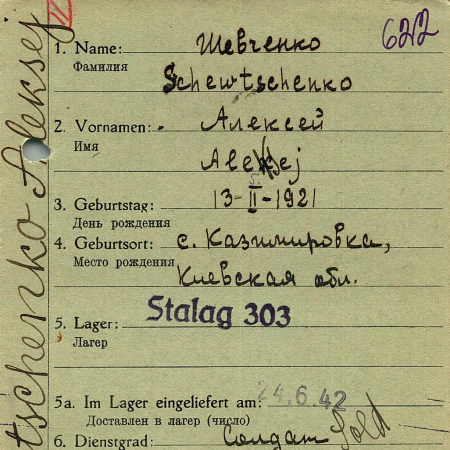 622
1. Name: Шевченко
Фамилия
Schewtschenko
2. Vornamen: Алексей
Имя
Aleksej
3. Geburtstag: 13-II-1921
День рождения
4. Geburtsort: с. Казимировка,
Место рождения
Киевская обл.
5. Lager: Stalag 303
Лагерь
5a. Im Lager eingeliefert am: 24.6.42
Доставлен в лагер (число)
6. Dienstgrad: Солдат Sold
tschenko Aleksej